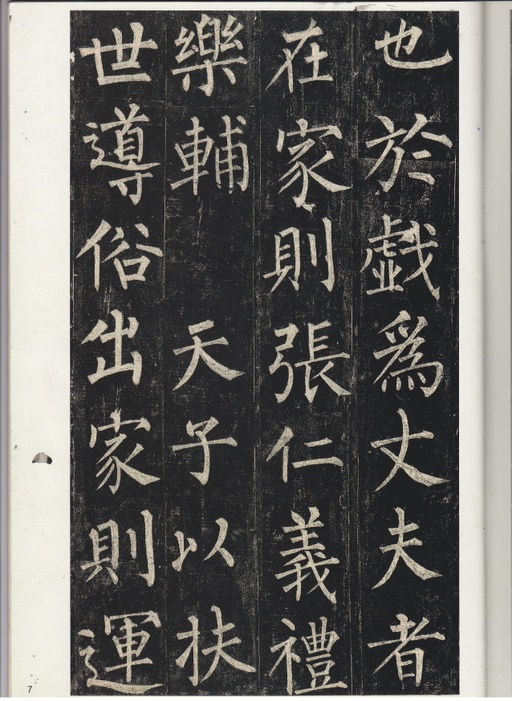 也於戲為丈夫者
在家則張仁義禮
樂輔天子以扶
世導俗出家則運
7